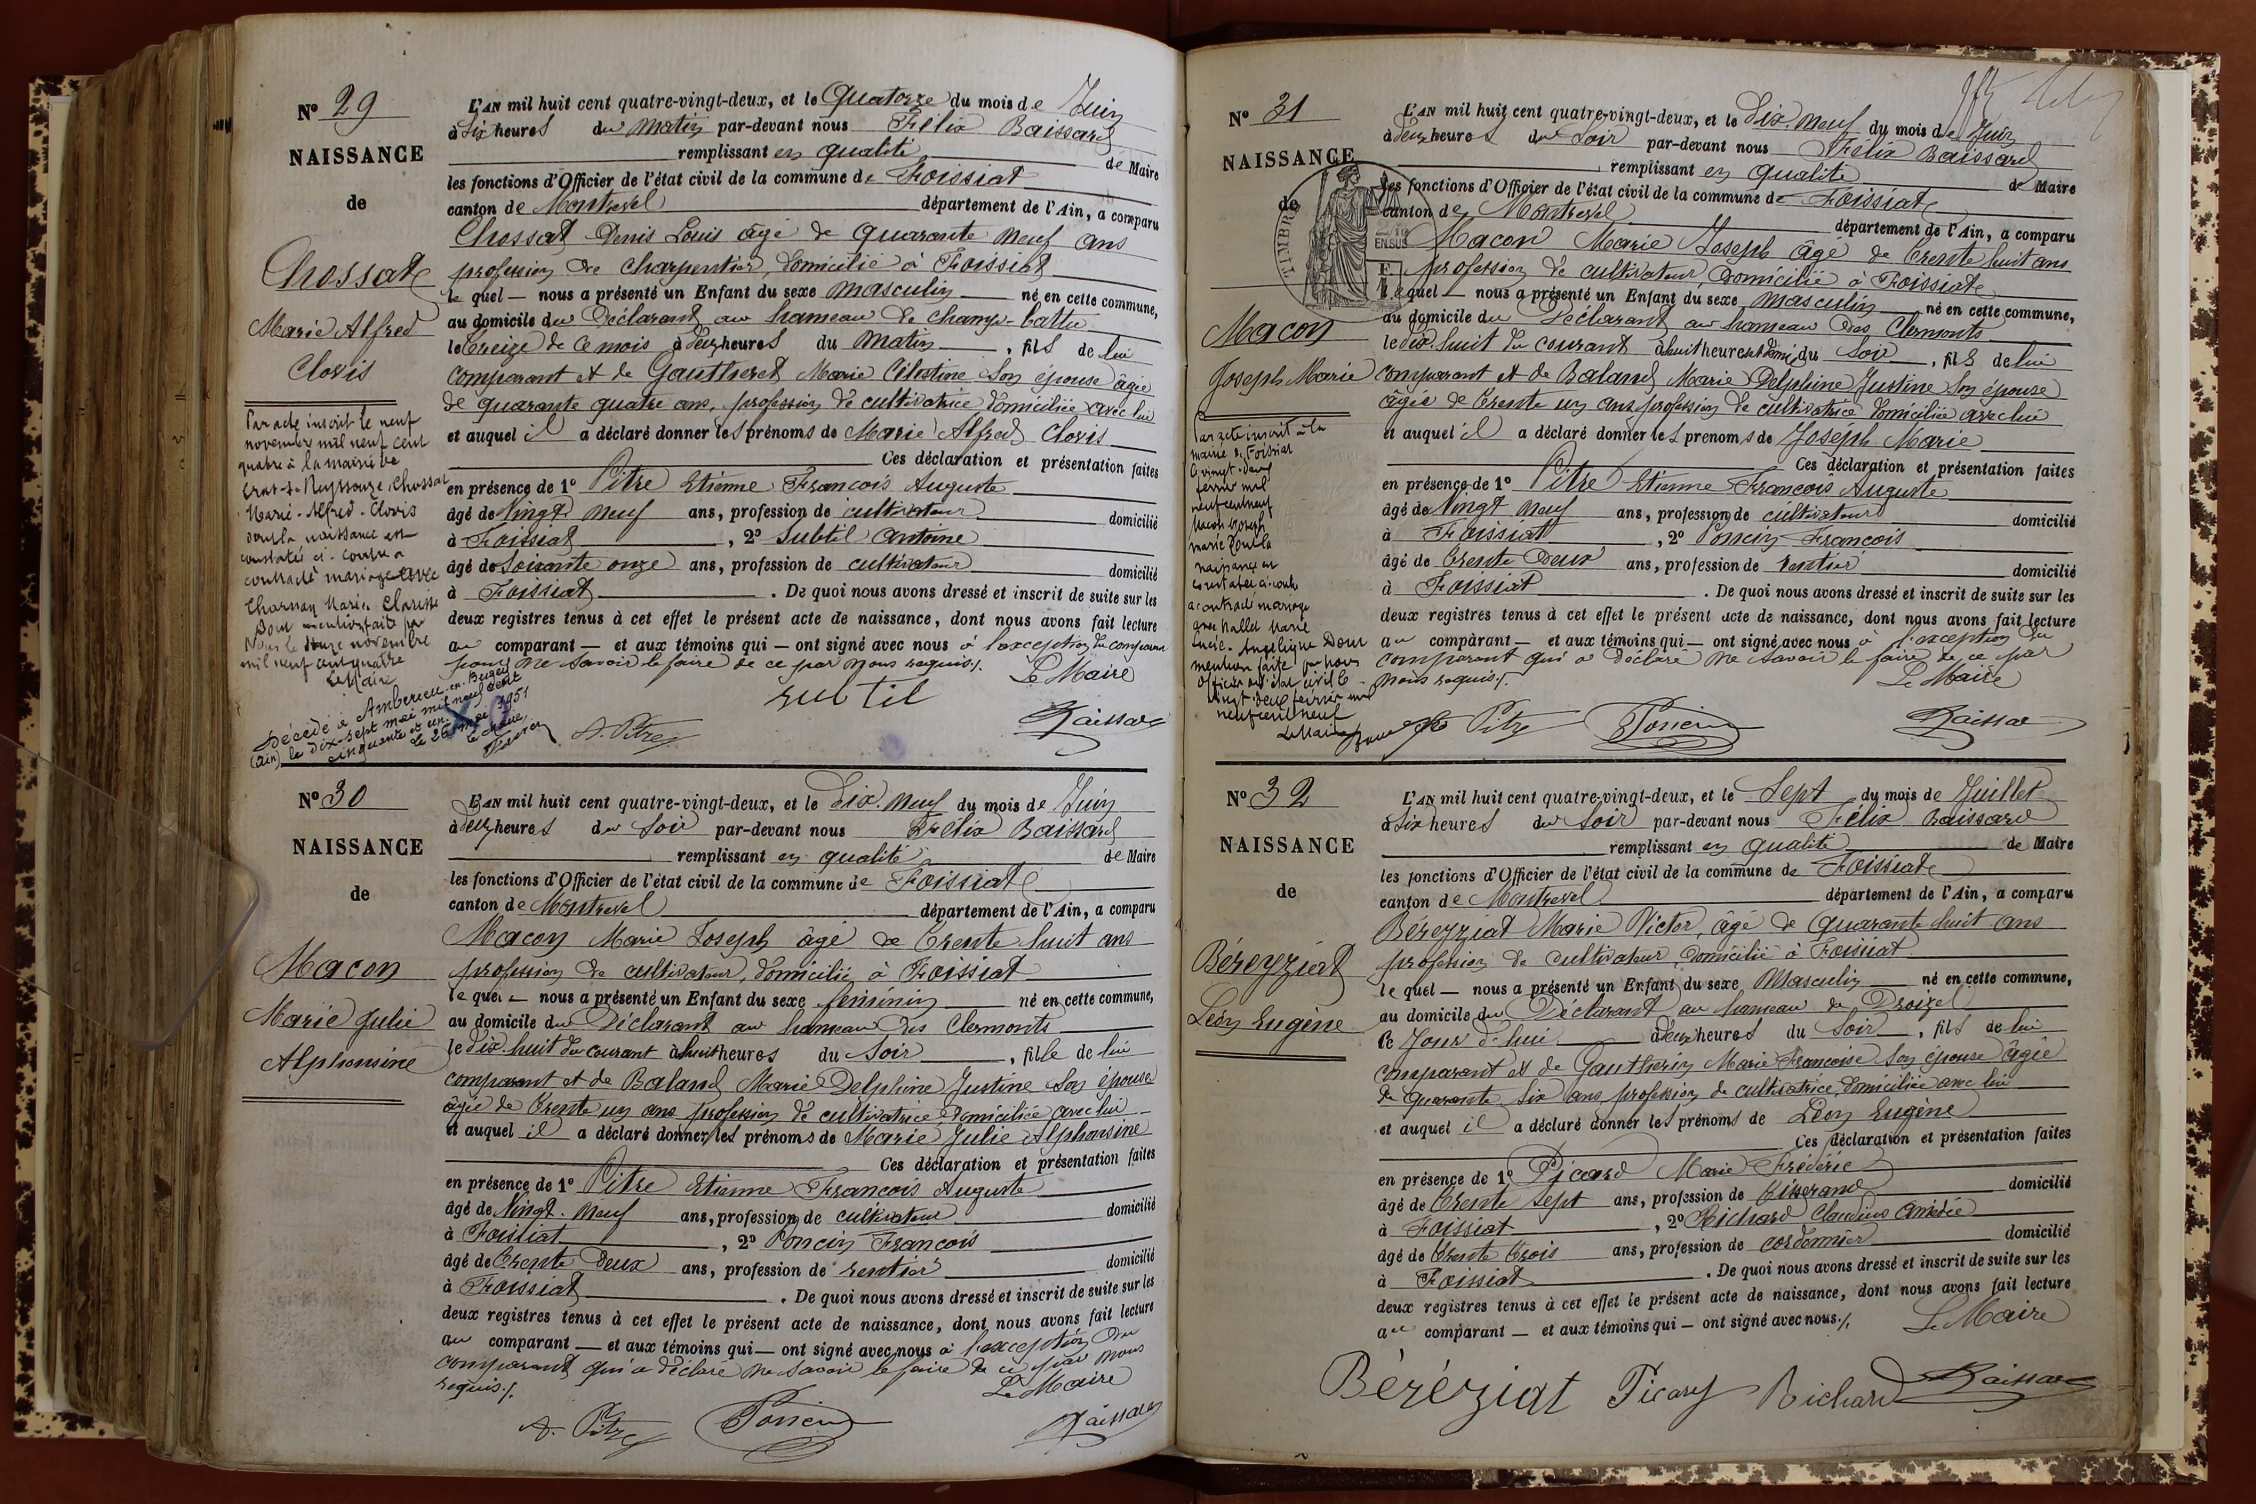 N° 29
NAISSANCE
de
Chossat
Marie Alfred
Clovis
Par acte inscrit le neuf
novembre mil neuf cent
quatre à la mairie de
Cras-s-Reyssouze, Chossat
Marie-Alfred-Clovis
dont la naissance est
constatée ci-contre a
contracté mariage avec
Charnay Marie Clarisse
Dont mention faite par
Nous le douze novembre
mil neuf cent quatre
Le Maire
Décédé à Ambérieu-en-Bugey
(Ain) le dix-sept mai mil neuf cent
cinquante et un.
le 26 mai 1951
L'AN mil huit cent quatre-vingt-deux, et le Quatorze du mois de Juin
à Six heures du matin par-devant nous Félix Baissard
remplissant en qualité de Maire
les fonctions d'Officier de l'état civil de la commune de Foissiat
canton de Montrevel département de l'Ain, a comparu
Chossat Denis Louis âgé de quarante neuf ans
profession de charpentier, domicilié à Foissiat
le quel — nous a présenté un Enfant du sexe masculin né en cette commune,
au domicile du Déclarant au hameau de Champ-battu
le treize de ce mois à deux heures du matin, fils de lui
comparant et de Gautheret Marie Célestine son épouse âgée
de quarante quatre ans, profession de cultivatrice domiciliée avec lui
et auquel il a déclaré donner les prénoms de Marie Alfred Clovis
Ces déclaration et présentation faites
en présence de 1° Pitre Etienne François Auguste
âgé de Vingt neuf ans, profession de cultivateur domicilié
à Foissiat, 2° Subtil Antoine
âgé de Soixante onze ans, profession de cultivateur domicilié
à Foissiat. De quoi nous avons dressé et inscrit de suite sur les
deux registres tenus à cet effet le présent acte de naissance, dont nous avons fait lecture
au comparant — et aux témoins qui — ont signé avec nous à l'exception du comparant
pour ne savoir le faire de ce par nous requis./.
Le Maire
subtil
A. Pitre
Baissard
N° 30
NAISSANCE
de
Macon
Marie Julie
Alphonsine
L'AN mil huit cent quatre-vingt-deux, et le Dix-neuf du mois de Juin
à deux heures du Soir par-devant nous Félix Baissard
remplissant en qualité de Maire
les fonctions d'Officier de l'état civil de la commune de Foissiat
canton de Montrevel département de l'Ain, a comparu
Macon Marie Joseph âgé de Trente huit ans
profession de cultivateur, domicilié à Foissiat
le quel — nous a présenté un Enfant du sexe féminin né en cette commune,
au domicile du Déclarant au hameau des Clermonts
le Dix-huit du courant à huit heures du Soir, fille de lui
comparant et de Baland Marie Delphine Justine son épouse
âgée de Trente un ans profession de cultivatrice domiciliée avec lui
et auquel il a déclaré donner les prénoms de Marie Julie Alphonsine
Ces déclaration et présentation faites
en présence de 1° Pitre Etienne François Auguste
âgé de Vingt-neuf ans, profession de cultivateur domicilié
à Foissiat, 2° Poncin François
âgé de Trente Deux ans, profession de rentier domicilié
à Foissiat. De quoi nous avons dressé et inscrit de suite sur les
deux registres tenus à cet effet le présent acte de naissance, dont nous avons fait lecture
au comparant — et aux témoins qui — ont signé avec nous à l'exception du
comparant qui a déclaré ne savoir le faire de ce par nous
requis./.
Le Maire
A. Pitre
Poncin
Baissard
N° 31
NAISSANCE
de
TIMBRE
Macon
Joseph Marie
Par acte inscrit à la
mairie de Foissiat
le vingt-deux
février mil
neuf cent neuf
Macon Joseph
Marie dont la
naissance est
constatée ci-contre
a contracté mariage
avec Mallet Marie
Lucie-Angélique Dont
mention faite par nous
Officier de l'état civil le
vingt-deux février mil
neuf cent neuf
Le Maire
L'AN mil huit cent quatre-vingt-deux, et le Dix-neuf du mois de Juin
à deux heures du Soir par-devant nous Félix Baissard
remplissant en qualité de Maire
les fonctions d'Officier de l'état civil de la commune de Foissiat
canton de Montrevel département de l'Ain, a comparu
Macon Marie Joseph âgé de Trente huit ans
profession de cultivateur, domicilié à Foissiat
le quel — nous a présenté un Enfant du sexe masculin né en cette commune,
au domicile du Déclarant au hameau des Clermonts
le dix-huit du courant à huit heures et demi du Soir, fils de lui
comparant et de Baland Marie Delphine Justine son épouse
âgée de Trente un ans profession de cultivatrice domiciliée avec lui
et auquel il a déclaré donner les prénoms de Joseph Marie
Ces déclaration et présentation faites
en présence de 1° Pitre Etienne François Auguste
âgé de Vingt neuf ans, profession de cultivateur domicilié
à Foissiat, 2° Poncin François
âgé de Trente Deux ans, profession de rentier domicilié
à Foissiat. De quoi nous avons dressé et inscrit de suite sur les
deux registres tenus à cet effet le présent acte de naissance, dont nous avons fait lecture
au comparant — et aux témoins qui — ont signé avec nous à l'exception du
comparant qui a déclaré ne savoir le faire de ce par
nous requis./.
Le Maire
Pitre
Poncin
Baissard
N° 32
NAISSANCE
de
Béreyziat
Léon Eugène
L'AN mil huit cent quatre-vingt-deux, et le Sept du mois de Juillet
à Six heures du Soir par-devant nous Félix Baissard
remplissant en qualité de Maire
les fonctions d'Officier de l'état civil de la commune de Foissiat
canton de Montrevel département de l'Ain, a comparu
Béreyziat Marie Victor, âgé de quarante huit ans
profession de cultivateur, domicilié à Foissiat
le quel — nous a présenté un Enfant du sexe Masculin né en cette commune,
au domicile du Déclarant au hameau de Droizel
le Jour d'hui à deux heures du Soir, fils de lui
comparant et de Gautherin Marie Françoise son épouse âgée
de quarante six ans, profession de cultivatrice, domiciliée avec lui
et auquel il a déclaré donner les prénoms de Léon Eugène
Ces déclaration et présentation faites
en présence de 1° Picard Marie Frédéric
âgé de Trente sept ans, profession de tisserand domicilié
à Foissiat, 2° Richard Claudius Amédée
âgé de Trente trois ans, profession de cordonnier domicilié
à Foissiat. De quoi nous avons dressé et inscrit de suite sur les
deux registres tenus à cet effet le présent acte de naissance, dont nous avons fait lecture
au comparant — et aux témoins qui — ont signé avec nous./.
Le Maire
Béréziat Picard Richard Baissard